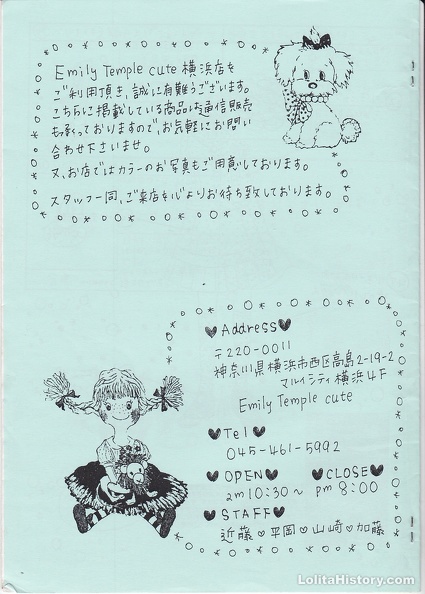 Emily Temple cute 横浜店を
ご利用頂き、誠に有難うございます。
こちらに掲載している商品は通信販売
も承っておりますので、お気軽にお問い
合わせ下さいませ。
又、お店ではカラーのお写真もご用意しております。
スタッフ一同、ご来店を心よりお待ち致しております。
♥Address♥
〒220-0011
神奈川県横浜市西区高島2-19-2
マルイシティ横浜4F
Emily Temple cute
♥Tel♥
045-461-5992
♥OPEN♥ ♥CLOSE♥
am10:30~ pm 8:00
♥STAFF♥
近藤♥平岡♥山崎♥加藤
LolitaHistory.com